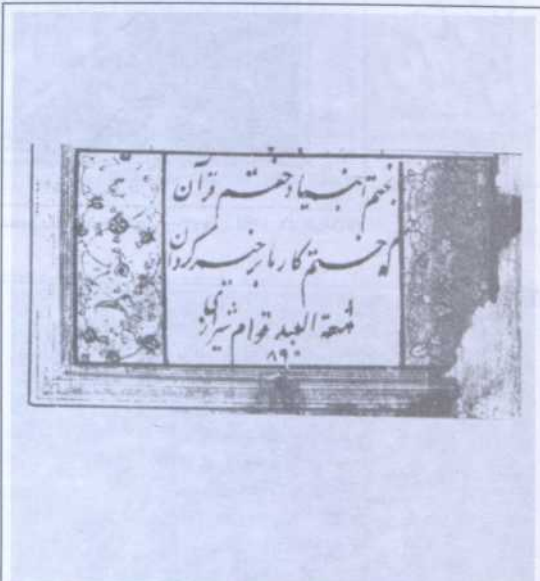 بختم انبیا و ختم قرآن
که ختم کار ما بر خیر گردان
لمشقه العبد قوام شیرازی
۸۹۰